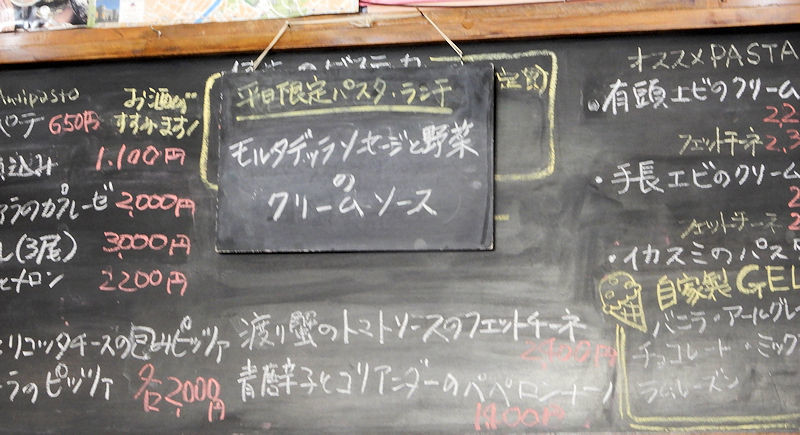 Antipasto
お酒が
すすみます!
650円
込み 1,100円
2,000円
(3尾) 3,000円
メロン 2200円
リコッタチーズの包みピッツァ
ラのピッツァ 各2,000円
平日限定パスタ・ランチ
モルタデッラソーセージと野菜
の
クリーム・ソース
渡り蟹のトマトソースのフェットチーネ
青唐辛子とコリアンダーのペペロンチーノ
1800円
オススメPASTA
・有頭エビのクリーム
フェットチーネ
・手長エビのクリーム
フェットチーネ
・イカスミのパスタ
自家製GEL
バニラ・アールグレ
チョコレート・ミック
ラムレーズン